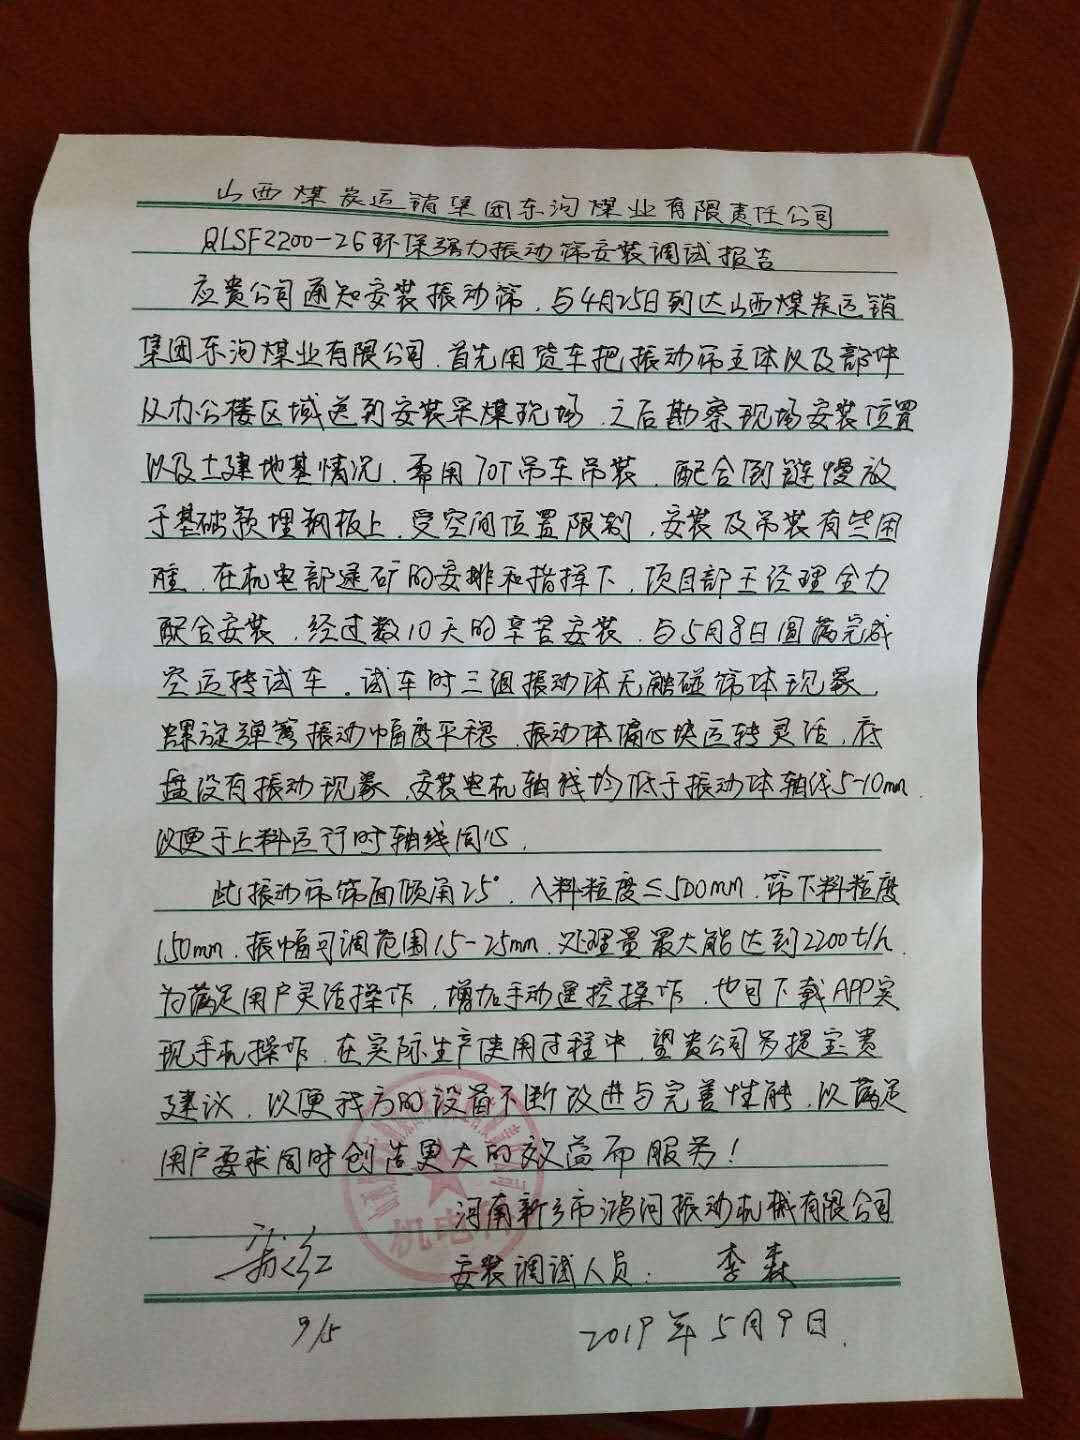 山西煤炭运销集团东沟煤业有限责任公司
QLSF2200-26环保强力振动筛安装调试报告
应贵公司通知安装振动筛，与4月25日到达山西煤炭运销
集团东沟煤业有限公司，首先用货车把振动筛主体以及部件
从办公楼区域送到安装采煤现场，之后勘察现场安装位置
以及土建地基情况，需用70T吊车吊装，配合倒链慢放
于基础预埋钢板上，受空间位置限制，安装及吊装有些困
难，在机电部逯矿的安排和指挥下，项目部王经理全力
配合安装，经过数10天的辛苦安装，与5月8日圆满完成
空运转试车。试车时三组振动体无触碰筛体现象，
螺旋弹簧振动幅度平稳，振动体偏心块运转灵活，底
盘没有振动现象，安装电机轴线均低于振动体轴线5-10mm，
以便于上料运行时轴线同心。
此振动筛筛面倾角25°，入料粒度≤500mm，筛下料粒度
150mm，振幅可调范围15-25mm，处理量最大能达到2200t/h，
为满足用户灵活操作，增加手动遥控操作，也可下载APP实
现手机操作，在实际生产使用过程中，望贵公司多提宝贵
建议，以便我方的设备不断改进与完善性能，以满足
用户要求同时创造更大的效益而服务！
河南新乡市鸿河振动机械有限公司
机电科
安装调试人员：李森
9/5
2019年5月9日.